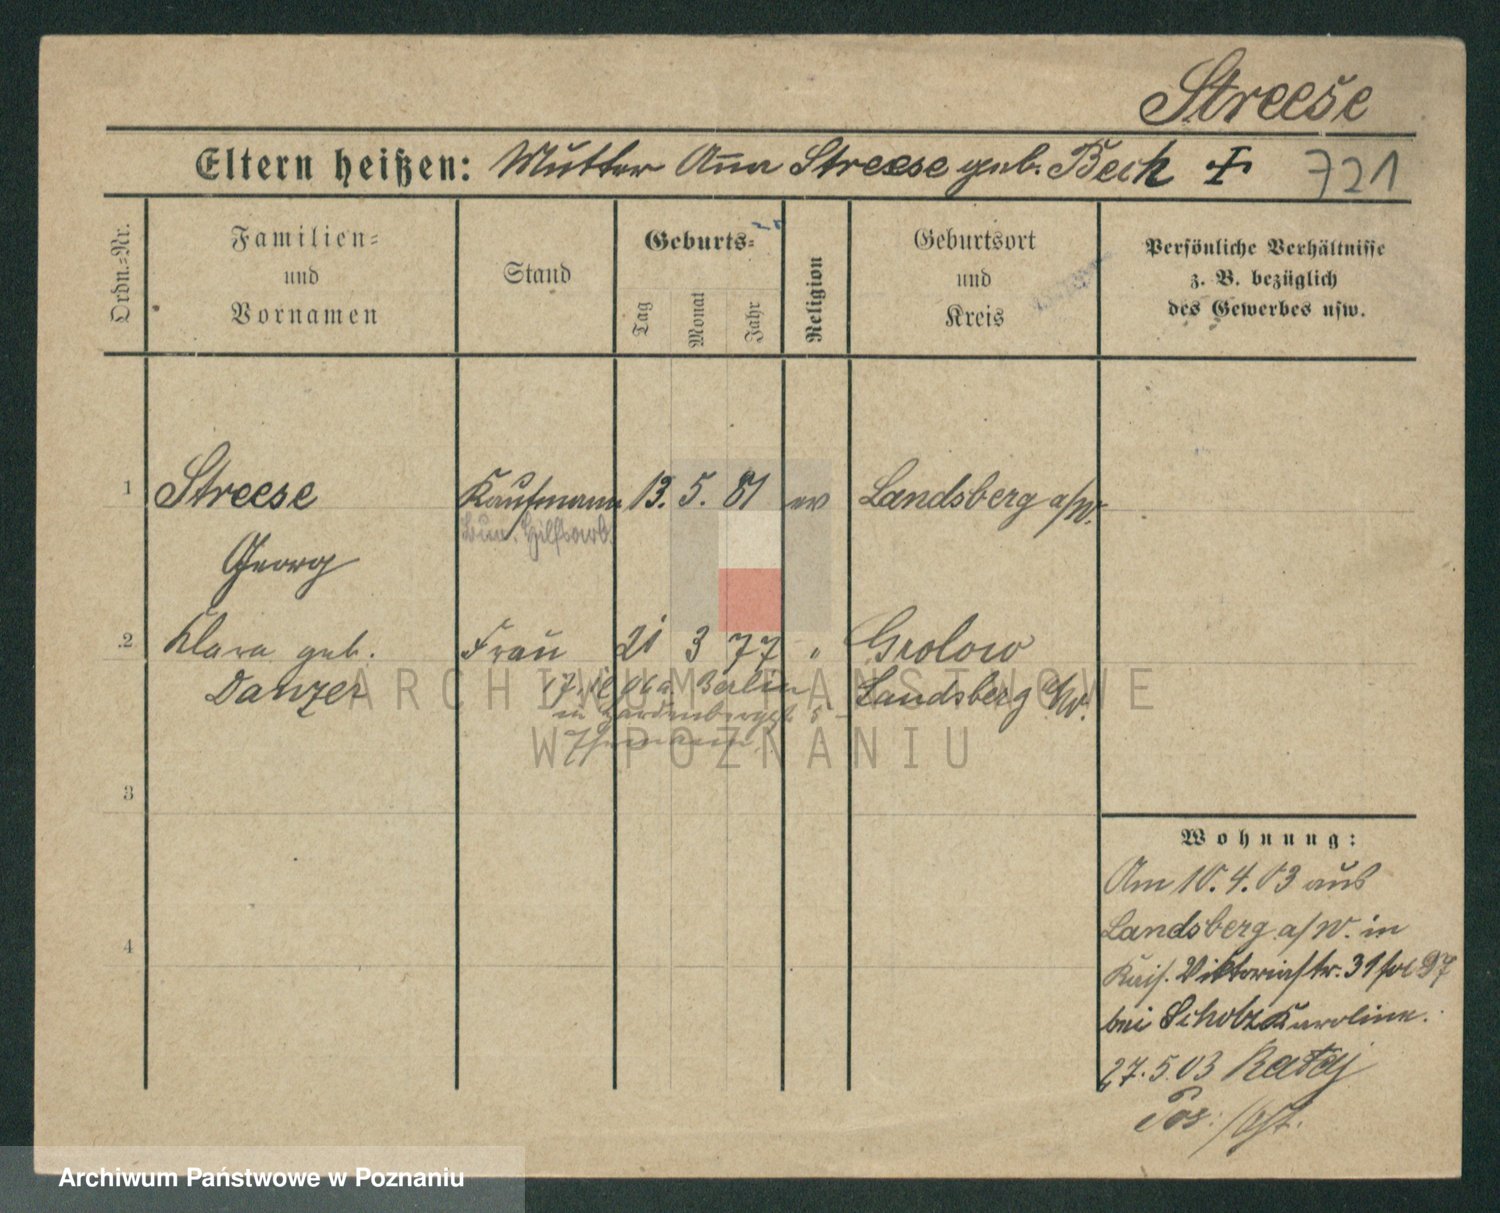 Streese
Eltern heißen: Mutter Anna Streese geb. Beck † 721
Ordn.-Nr.
Familien-
und
Vornamen
Stand
Geburts-
Tag
Monat
Jahr
Religion
Geburtsort
und
Kreis
Persönliche Verhältnisse
z. B. bezüglich
des Gewerbes usw.
1 Streese Kaufmann 13. 5. 81 ev Landsberg a/W.
Bur. Hilfsarb.
Georg
2 Klara geb. Frau 21 3 77 " Grolow
Danzer Landsberg a/W.
Berlin
in
3
4
Wohnung:
Am 10.4.03 aus
Landsberg a/W. in
Kais. Viktoriastr. 31
bei Scholz Karoline.
27.5.03 Rataj
Pos.
ARCHIWUM PAŃSTWOWE
W POZNANIU
Archiwum Państwowe w Poznaniu